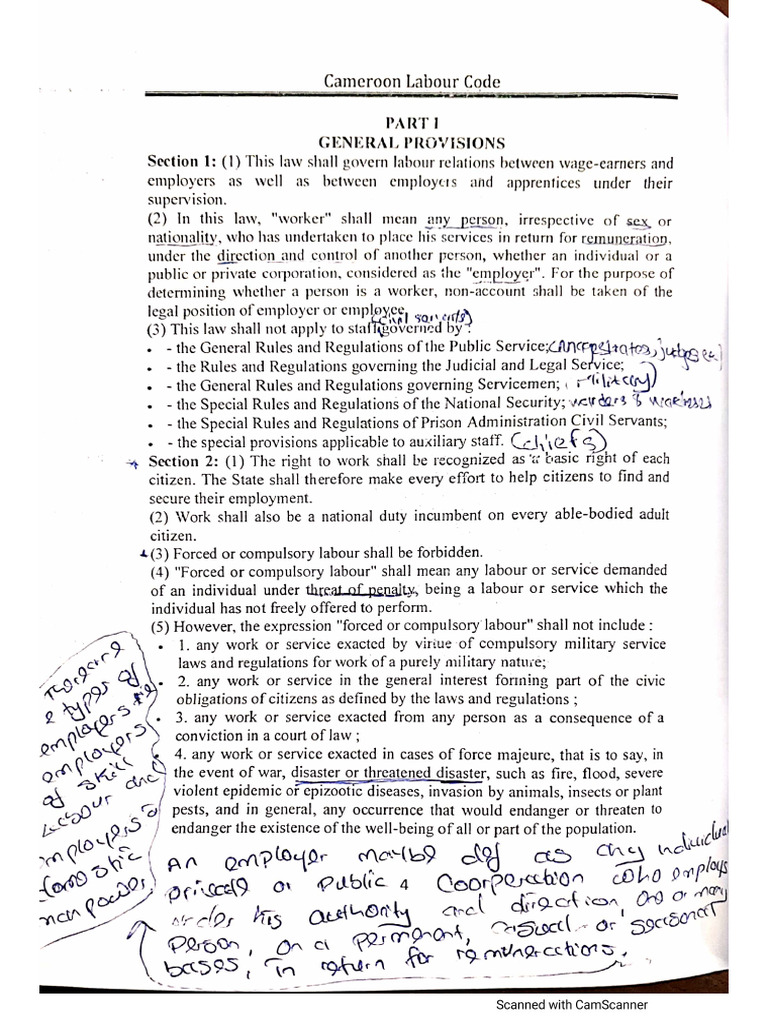 Cameroon Labour Code
PART I
GENERAL PROVISIONS
Section 1: (1) This law shall govern labour relations between wage-earners and
employers as well as between employers and apprentices under their
supervision.
(2) In this law, "worker" shall mean any person, irrespective of sex or
nationality, who has undertaken to place his services in return for remuneration,
under the direction and control of another person, whether an individual or a
public or private corporation, considered as the "employer". For the purpose of
determining whether a person is a worker, non-account shall be taken of the
legal position of employer or employee.
(civil servants)
(3) This law shall not apply to staff governed by :
• - the General Rules and Regulations of the Public Service;
• - the Rules and Regulations governing the Judicial and Legal Service;
• - the General Rules and Regulations governing Servicemen; (military)
• - the Special Rules and Regulations of the National Security; warders &
• - the Special Rules and Regulations of Prison Administration Civil Servants;
• - the special provisions applicable to auxiliary staff. (chiefs)
Section 2: (1) The right to work shall be recognized as a basic right of each
citizen. The State shall therefore make every effort to help citizens to find and
secure their employment.
(2) Work shall also be a national duty incumbent on every able-bodied adult
citizen.
(3) Forced or compulsory labour shall be forbidden.
(4) "Forced or compulsory labour" shall mean any labour or service demanded
of an individual under threat of penalty, being a labour or service which the
individual has not freely offered to perform.
(5) However, the expression "forced or compulsory labour" shall not include :
• 1. any work or service exacted by virtue of compulsory military service
laws and regulations for work of a purely military nature;
• 2. any work or service in the general interest forming part of the civic
obligations of citizens as defined by the laws and regulations ;
• 3. any work or service exacted from any person as a consequence of a
conviction in a court of law ;
• 4. any work or service exacted in cases of force majeure, that is to say, in
the event of war, disaster or threatened disaster, such as fire, flood, severe
violent epidemic or epizootic diseases, invasion by animals, insects or plant
pests, and in general, any occurrence that would endanger or threaten to
endanger the existence of the well-being of all or part of the population.
There are
2 types of
employers
employers
of skill
Labour and
employers
manpower
An employer maybe def as any individual
private or Public Cooperation who employs
under his authority and direction, one or many
Person, on a permenent, casual or seasonal
bases, in return for remunerations.
Scanned with CamScanner